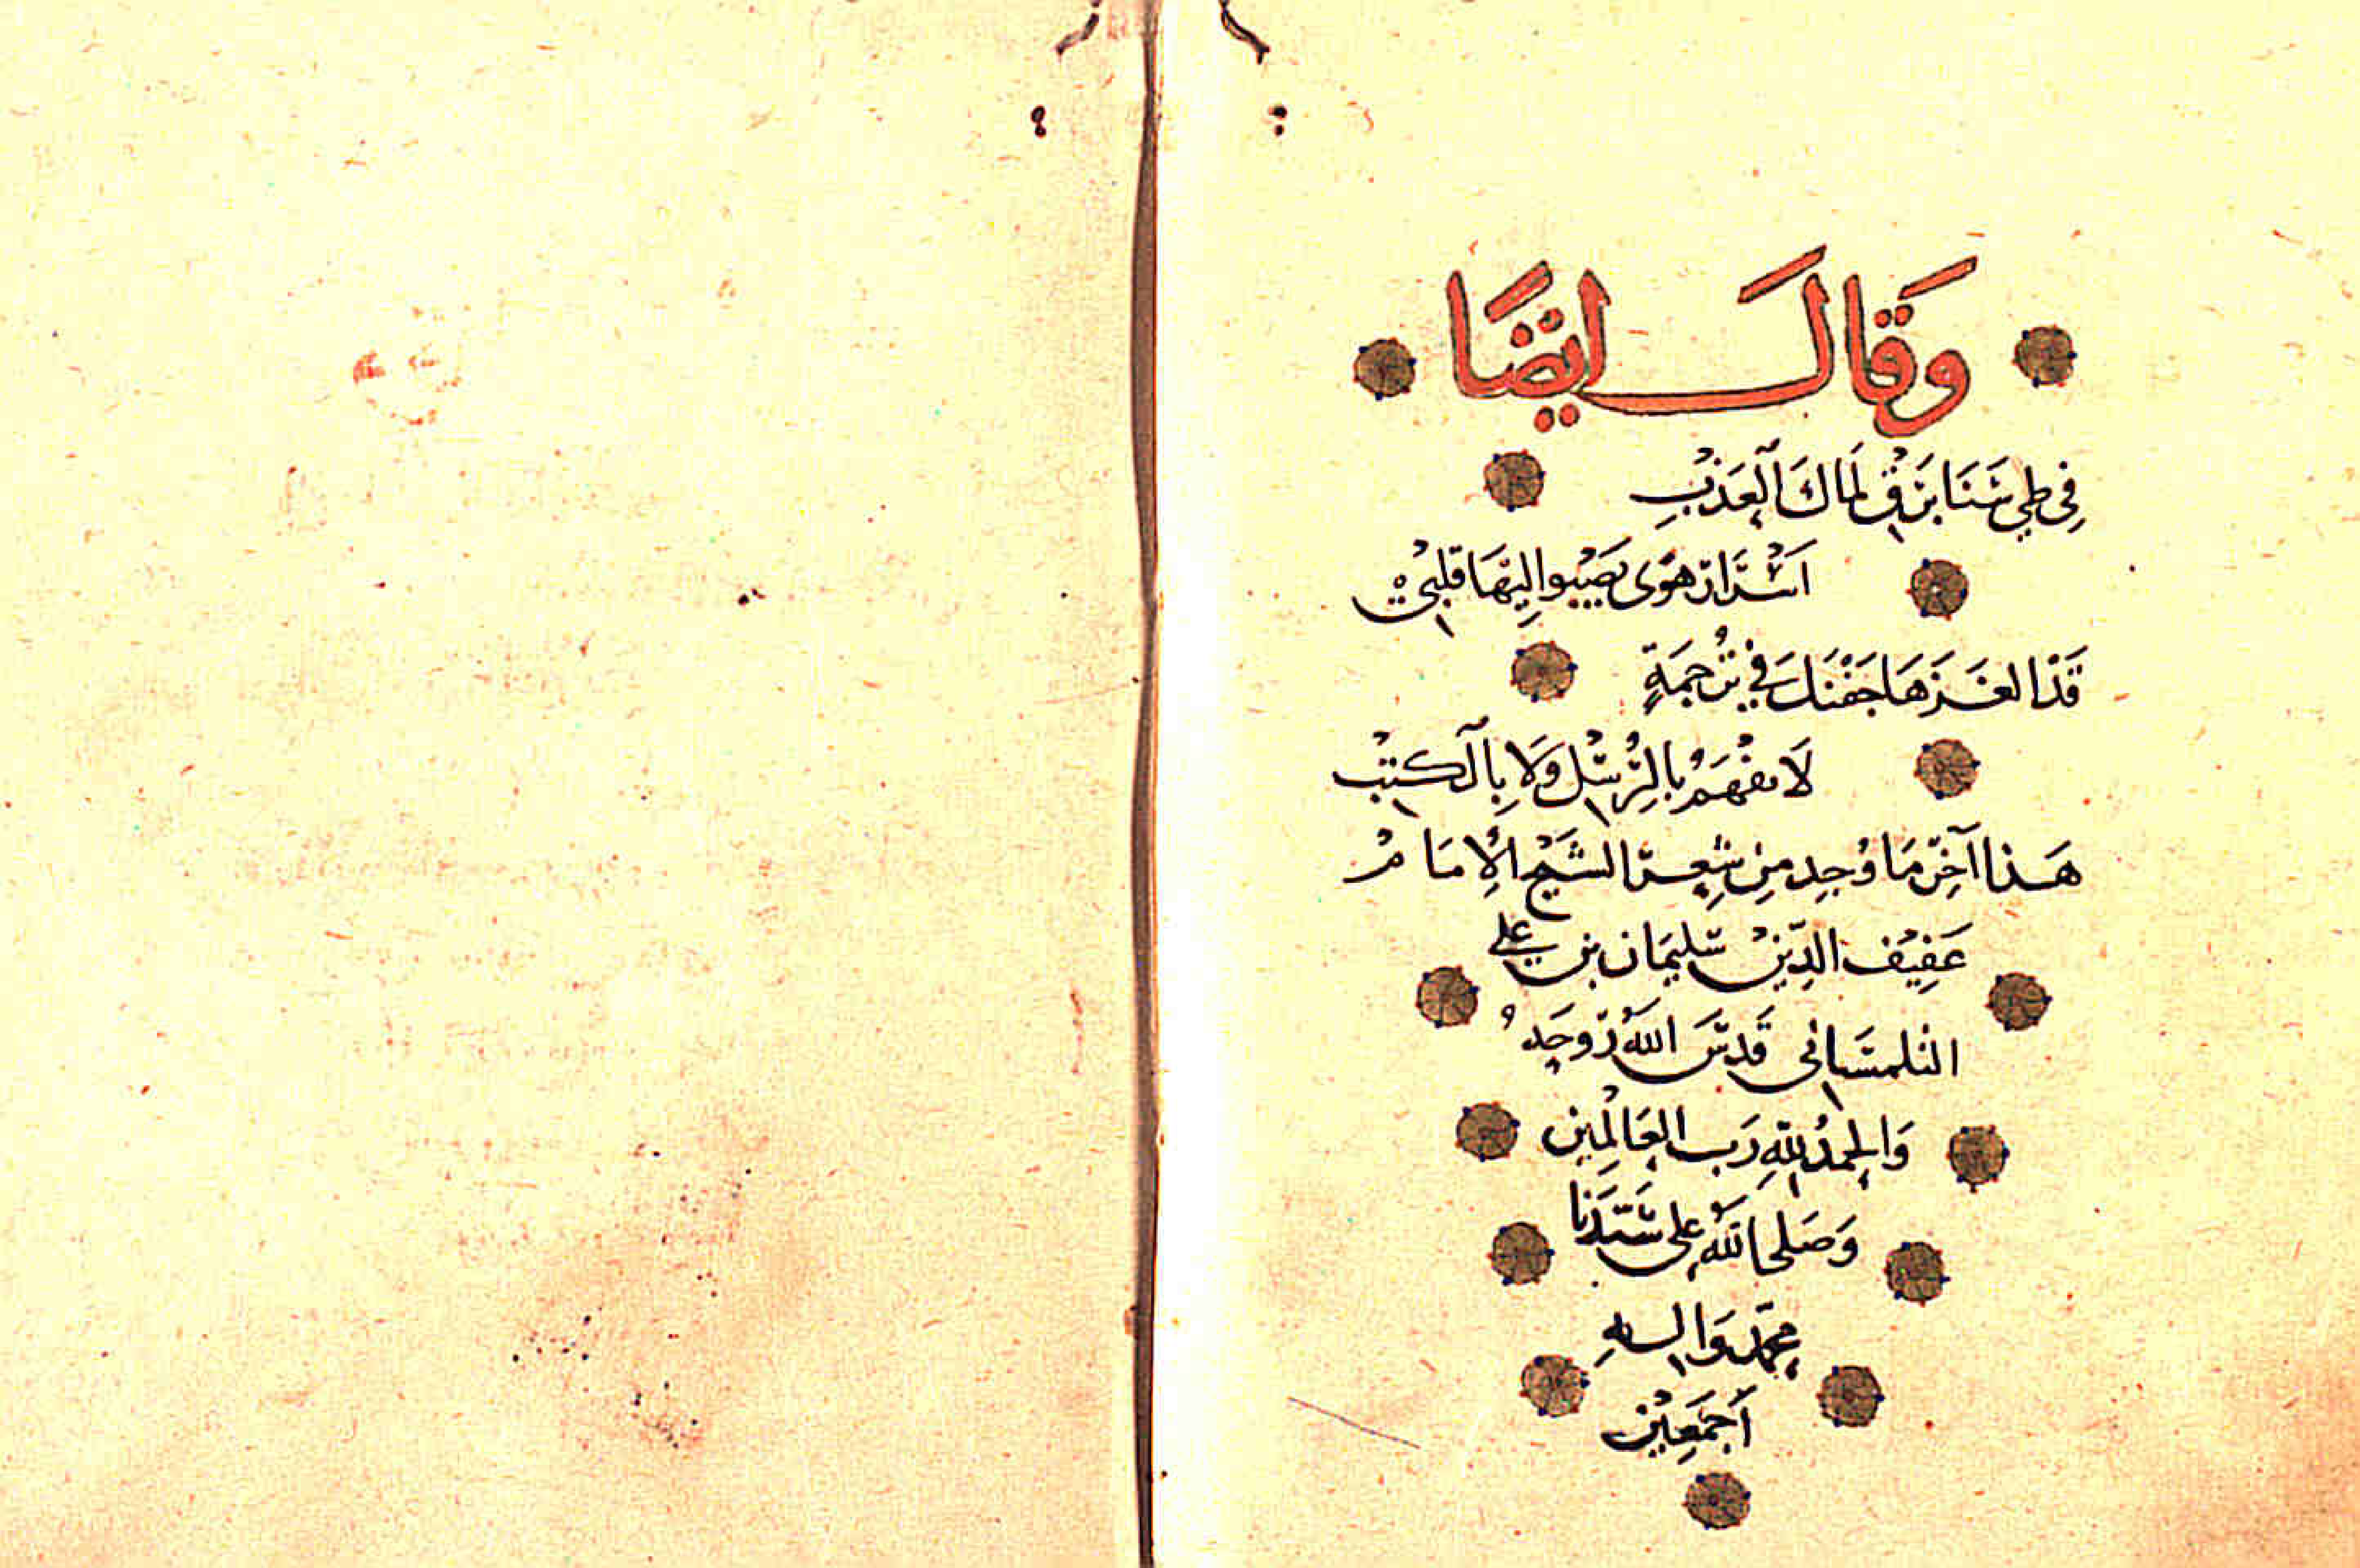 وَقَالَ ايضًا
فِي طَيِ سَنَا بَرْقِ لَمَاكَ الْعَذْبِ
اَسْرَارُ هَوًى يَصْبُوا اِلَيْهَا قَلْبِي
قَدْ الغَزَهَا جَفْنَكَ فِي تَرْجُمَةٍ
لَا تفْهَمُ بِالرُّسْلِ وَلَا بِالْكُتْبِ
هَذا آخِرُ مَا وُجِد مِن شِعْرِ الشَيْخِ الْإِمَامْ
عَفِيْف الدِّيْن سُليمَان بن علي
التلمسَانى قَدسَ اللهُ رُوحَهُ
وَالحمدُ لِلّهِ رَب العَالَمِين
وَصَلى اللهُ عَلى سَيّدنَا
محمّد وَالِهِ
أَجْمَعِيْن